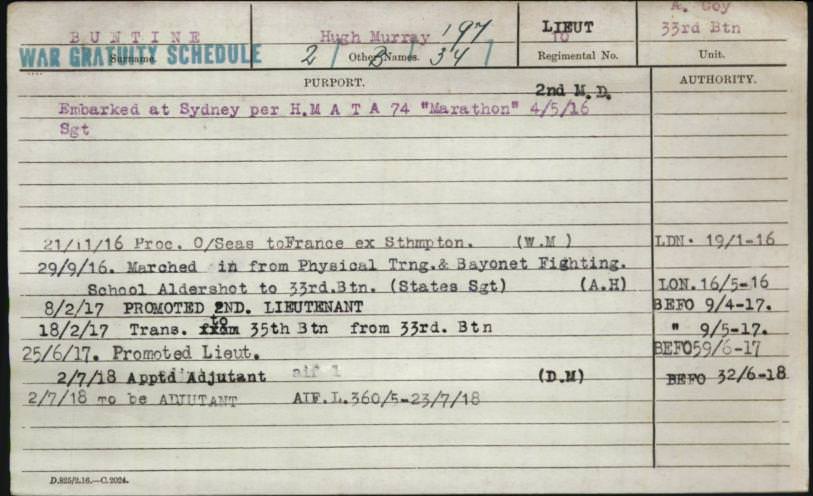 A. Coy
BUNTINE Hugh Murray 197 LIEUT 33rd Btn
WAR GRATUITY SCHEDULE 2 B 34
Surname. Other Names. Regimental No. Unit.
PURPORT. AUTHORITY.
2nd M.D.
Embarked at Sydney per H.M A T A 74 "Marathon" 4/5/16
Sgt
21/11/16 Proc. O/Seas toFrance ex Sthmpton. (W.M ) LDN. 19/1-16
29/9/16. Marched in from Physical Trng.& Bayonet Fighting.
School Aldershot to 33rd.Btn. (States Sgt) (A.H) LON.16/5-16
8/2/17 PROMOTED 2ND. LIEUTENANT BEFO 9/4-17.
to
18/2/17 Trans. from 35th Btn from 33rd. Btn " 9/5-17.
25/6/17. Promoted Lieut. BEFO59/6-17
2/7/18 Apptd Adjutant aif l (D.M) BEFO 32/6-18
2/7/18 TO be ADJUTANT AIF.L.360/5-23/7/18
D.825/2.16.—C.2024.